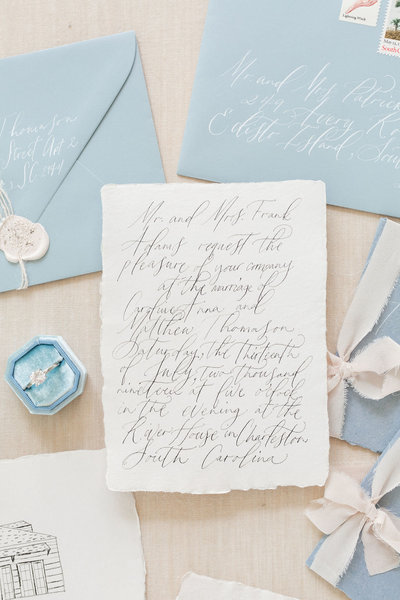 Thomason
Street Apt 2
Mr. and Mrs. Patrick
Avery
Edisto Island, Sou
Mr. and Mrs. Frank
Adams request the
pleasure of your company
at the marriage of
Caroline Anna and
Matthew Thomason
Saturday, the thirteenth
of July, two thousand
nineteen, at five o'clock
in the evening at the
River House in Charleston
South Carolina